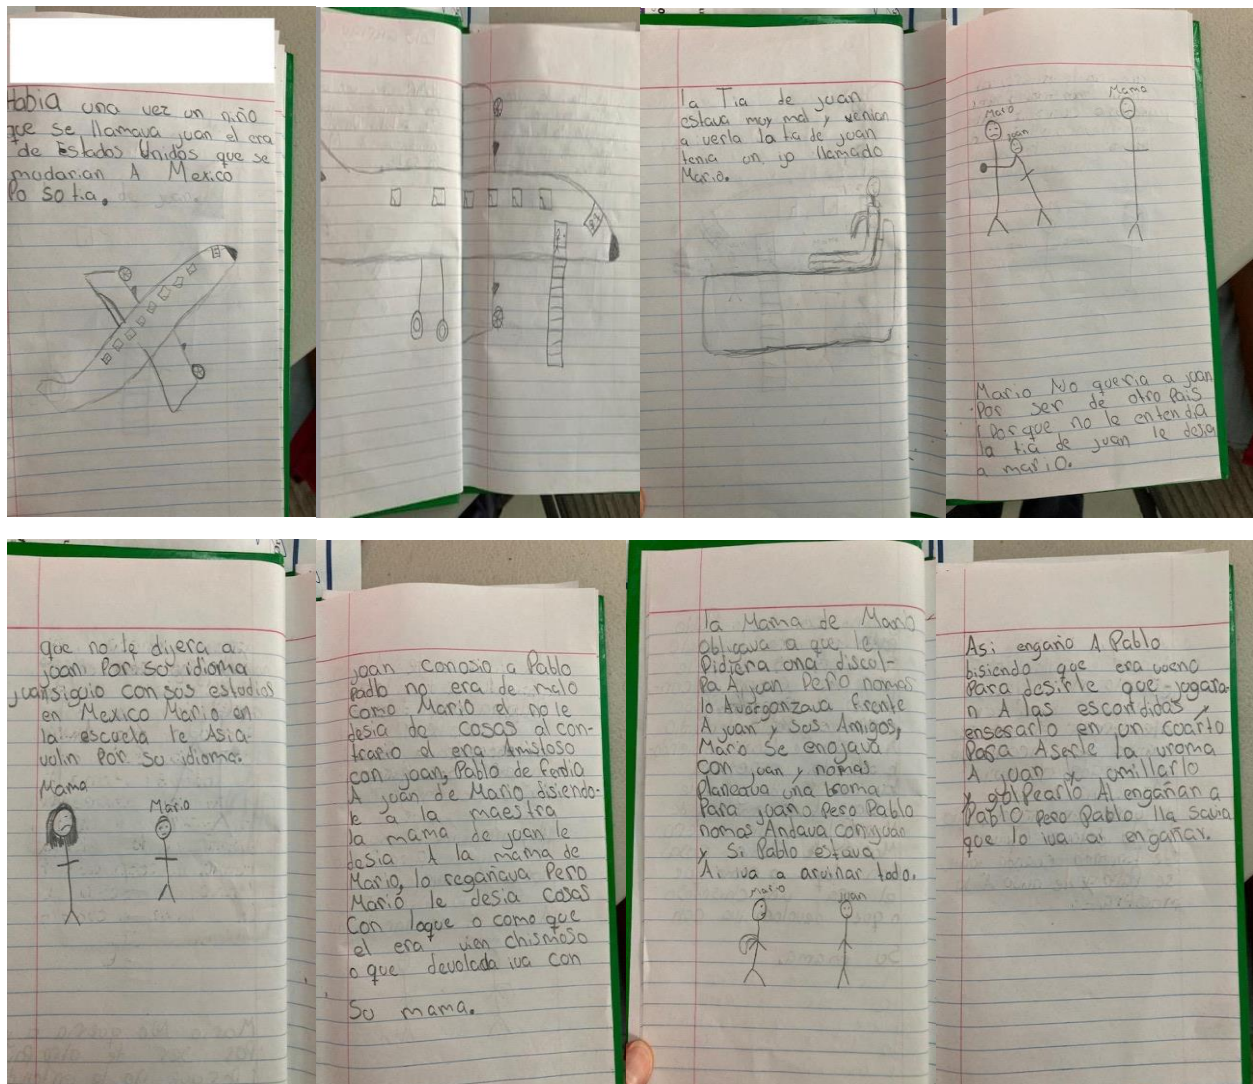 Habia una vez un niño
que se llamava juan el era
de Estados Unidos que se
mudarian A Mexico
Po so tia.
la Tia de juan
estava muy mal y venian
a verla la tia de juan
tenia un ijo llamado
Mario.
Mario
juan
Mama
Mario No queria a juan
Por ser de otro Pais
Porque no le entendia
la tia de juan le desia
a mariO.
que no le dijera a
juan Por so idioma
juan siguio con sus estudios
en Mexico Mario en
la escuela le Asia
vulin Por su idioma.
Mama
Mario
juan conosio a Pablo
Pablo no era de malo
Como Mario el no le
desia de cosas al con-
trario el era Amistoso
con juan, Pablo defendia
A juan de Mario disiendo-
le a la maestra
la mama de juan le
desia A la mama de
Mario, lo regañava Pero
Mario, le desia cosas
Con loque o como que
el era vien chismoso
o que devolada iva con
So mama.
la Mama de Mario
obligava a que le
Pidiera una discul-
Pa A juan Pero nomas
lo Avergonzava frente
A juan y sus Amigos,
Mario Se enojava
con juan y nomas
Planeava una broma
Para juan Pero Pablo
nomas Andava con juan
y Si Pablo estava
Ai iva a aruinar todo.
Mario
juan
Asi engaño A Pablo
bisiendo que era vueno
Para desirle que jugara-
n A las escondidas y
enserarlo en un cuarto
Para Aserle la vroma
A juan y umillarlo
y golpearlo Al engañan a
Pablo Pero Pablo lla savia
que lo iva ai engañar.